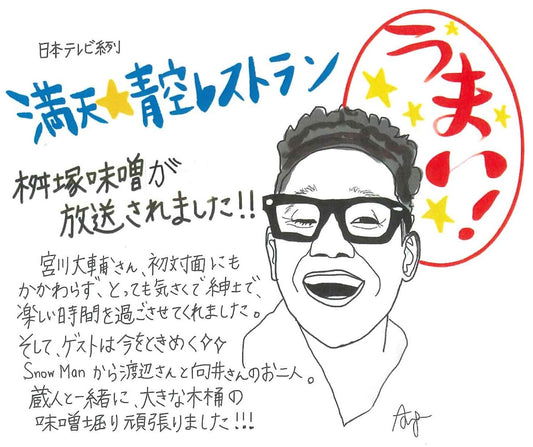 日本テレビ系列
満天★青空レストラン
うまい!
桝塚味噌が
放送されました!!
宮川大輔さん、初対面にも
かかわらず、とっても気さくで紳士で、
楽しい時間を過ごさせてくれました。
そして、ゲストは今をときめく✧✧
Snow Manから渡辺さんと向井さんのお二人。
蔵人と一緒に、大きな木桶の
味噌堀り頑張りました!!!